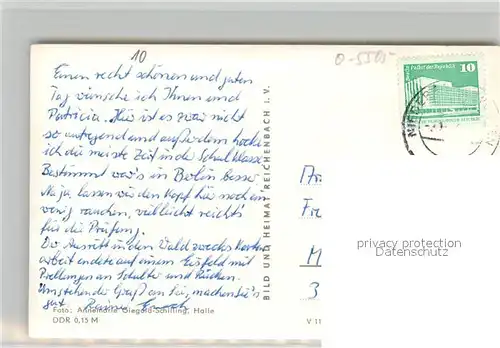 10
0-5505-
Einen recht schönen und guten
Tag wünsche ich Ihnen und
Patricia. Hier ist es zwar nicht
so aufregend und außerdem hocke
ich die meiste Zeit in der Schulklasse
Bestimmt war's in Berlin besser
Na ja, lassen wir den Kopf hier noch ein
wenig rauchen, vielleicht reicht's
für die Prüfung.
Der Ausritt in den Wald zwecks Karten
arbeit endete auf einem Eisfeld mit
Prellungen an Schulter und Rücken.
Umstehender Gruß an Sie, machen Sie's
gut Rainer
Foto: Annemarie Giegold-Schilling, Halle
DDR 0,15 M
V 11
BILD UND HEIMAT REICHENBACH I. V.
Palast der Republik
10
Fr
M
3
privacy protection
Datenschutz